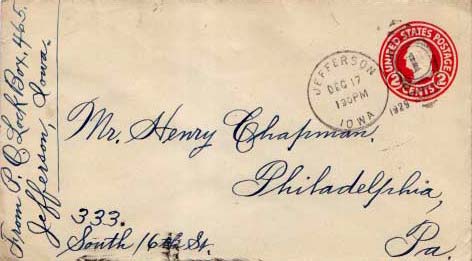 From P.O Lock Box, 465.
Jefferson, Iowa.
JEFFERSON
DEC 17
130PM
1929
IOWA
UNITED STATES POSTAGE
2 CENTS 2
Mr. Henry Chapman.
Philadelphia,
333.
South 16th St.
Pa.